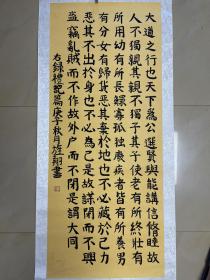 大道之行也天下為公選賢與能講信脩睦故
人不獨親其親不獨子其子使老有所終壯有
所用幼有所長鰥寡孤獨廢疾者皆有所養男
有分女有歸貨惡其棄於地也不必藏於己力
惡其不出於身也不必為己是故謀閉而不興
盜竊亂賊而不作故外戶而不閉是謂大同
右錄禮記篇庚子秋月翔書